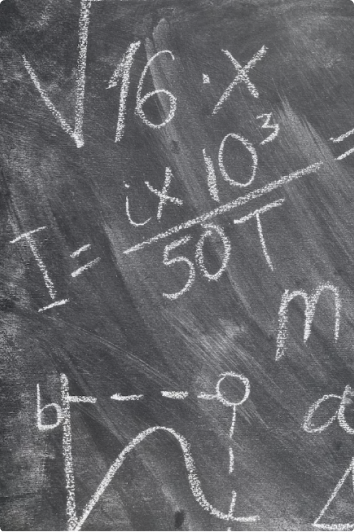 √16 · x
I = ix 10³ / 50T =
m
b
a